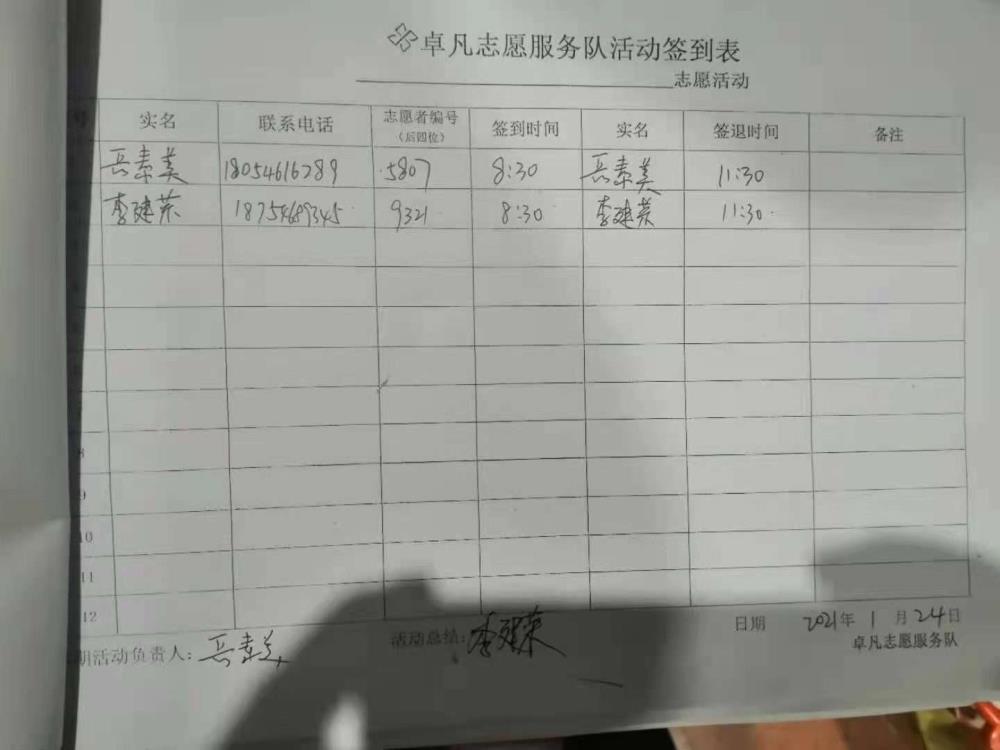 卓凡志愿服务队活动签到表
志愿活动
号 实名 联系电话 志愿者编号（后四位） 签到时间 实名 签退时间 备注
岳素美 18054616289 5807 8:30 岳素美 11:30
李建荣 18754689345 9321 8:30 李建荣 11:30
8
9
10
11
12
日期 2021年 1 月 24日
期活动负责人：岳素美 活动总结：李建荣
卓凡志愿服务队